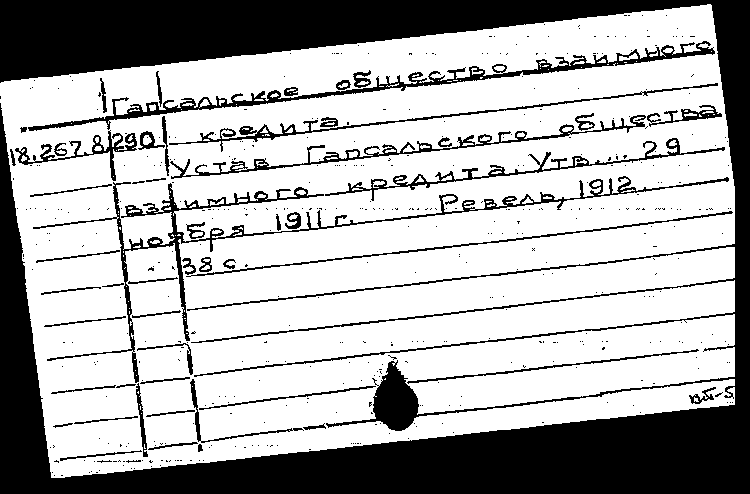 Гапсальское общество взаимного
18.267.8.290 кредита.
Устав Гапсальского общества
взаимного кредита. Утв.... 29
ноября 1911 г. Ревель, 1912.
38 с.